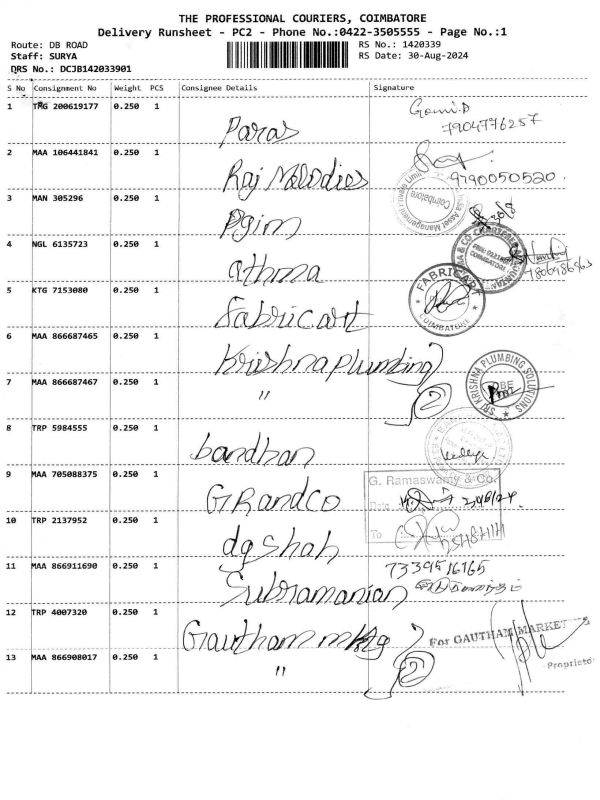 THE PROFESSIONAL COURIERS, COIMBATORE
Delivery Runsheet - PC2 - Phone No.:0422-3505555 - Page No.:1
Route: DB ROAD
Staff: SURYA
DRS No.: DCJB142033901
RS No.: 1420339
RS Date: 30-Aug-2024
S No Consignment No Weight PCS Consignee Details Signature
1 TRG 200619177 0.250 1 Paras 7904776257
2 MAA 106441841 0.250 1 Raj Melodies 9790050520
3 MAN 305296 0.250 1 Pgim
Coimbatore
4 NGL 6135723 0.250 1 athma
COIMBATORE
5 KTG 7153080 0.250 1 Fabricart
FABRICART
COIMBATORE
6 MAA 866687465 0.250 1 Krishna Plumbing
SRI KRISHNA PLUMBING SOLUTIONS
7 MAA 866687467 0.250 1 "
2
8 TRP 5984555 0.250 1 bandhan
9 MAA 705088375 0.250 1 GRandCo
G. Ramaswamy & Co.
Date
To
10 TRP 2137952 0.250 1 dg shah
11 MAA 866911690 0.250 1 Subramanian 7339516165
12 TRP 4007320 0.250 1 Gautham mktg
For GAUTHAM MARKET
Proprietor
13 MAA 866908017 0.250 1 "
2